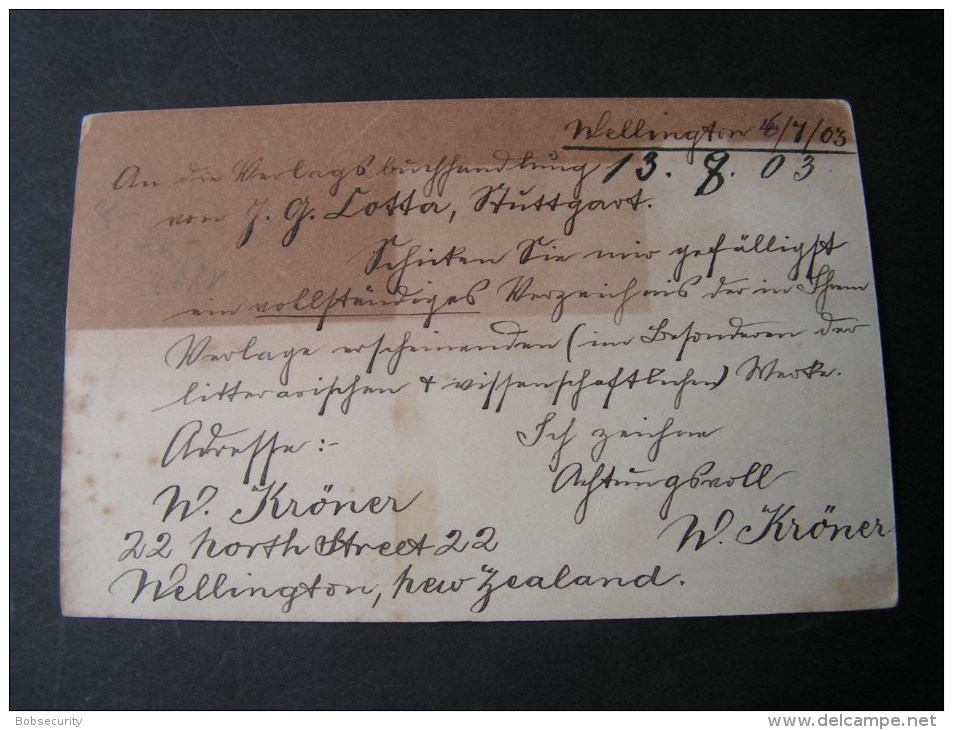 Wellington 16/7/03
An die Verlagsbuchhandlung 13. 8. 03
von J. G. Cotta, Stuttgart.
Schicken Sie mir gefälligst
ein vollständiges Verzeichnis der in Ihrem
Verlage erscheinenden (im Besonderen der
litterarischen & wissenschaftlichen) Werke.
Adresse:- Ich zeichne
Achtungsvoll
W. Kröner W. Kröner
22 North Street 22
Wellington, New Zealand.
Bobsecurity
www.delcampe.net